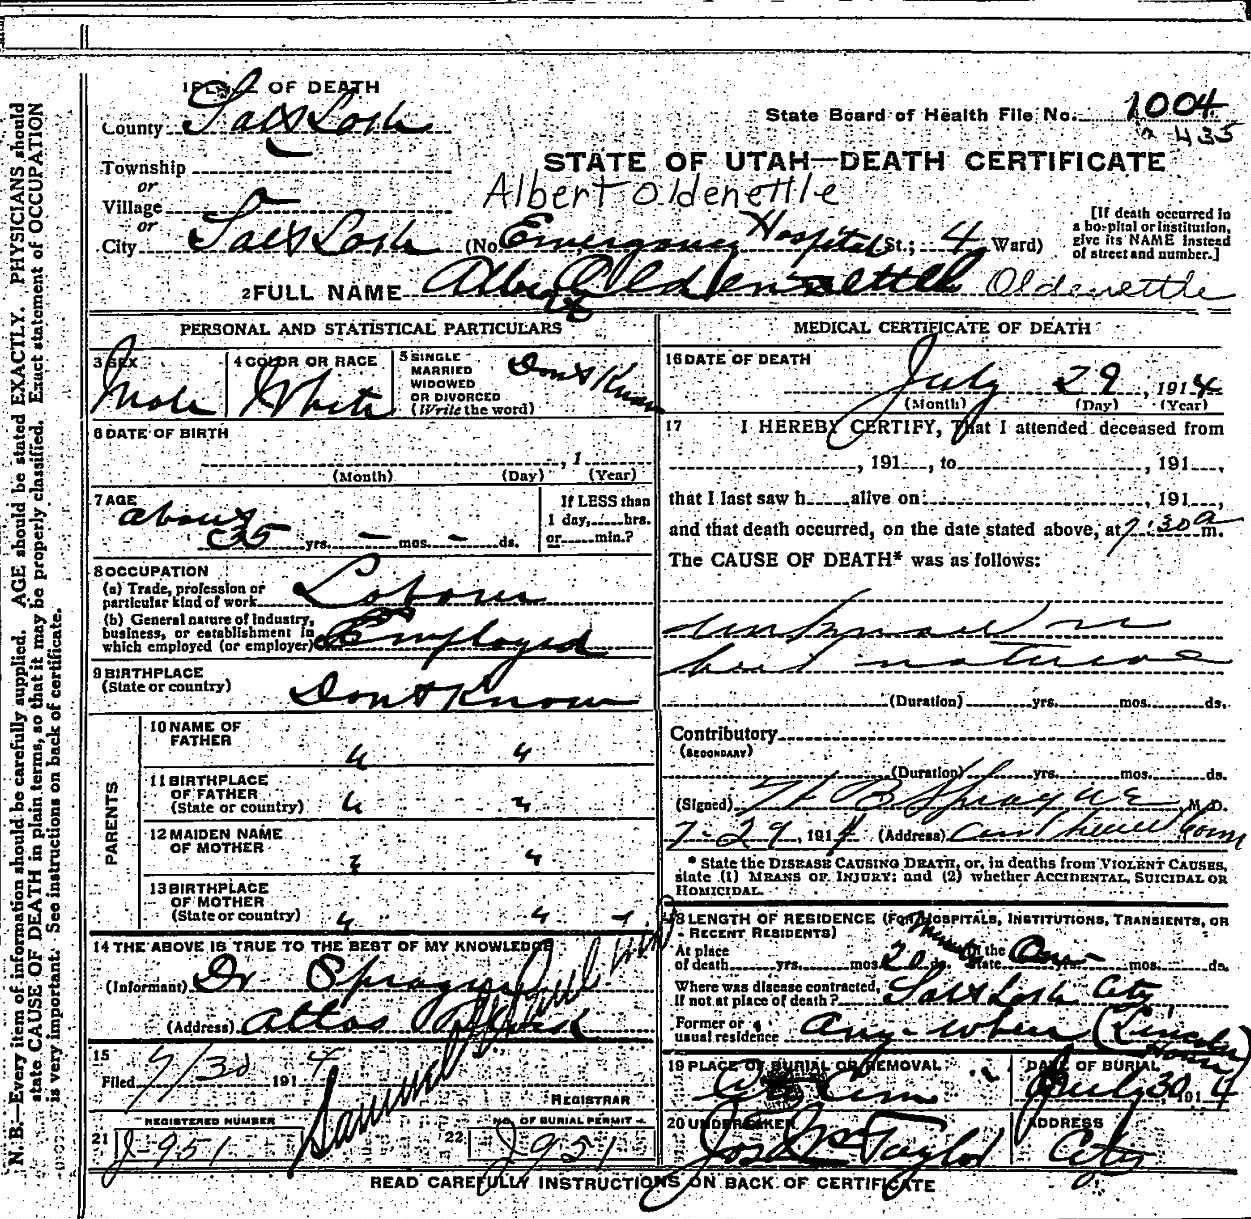 1 PLACE OF DEATH
County Salt Lake
State Board of Health File No. 1004
435
STATE OF UTAH—DEATH CERTIFICATE
Township
or
Village
or
Albert Oldenettle
City Salt Lake (No. Emergency Hospital St.; 4 Ward)
[If death occurred in
a hospital or institution,
give its NAME instead
of street and number.]
2 FULL NAME Albert Oldenettle Oldenettle
PERSONAL AND STATISTICAL PARTICULARS
3 SEX Male
4 COLOR OR RACE White
5 SINGLE
MARRIED
WIDOWED
OR DIVORCED
(Write the word)
Dont Know
6 DATE OF BIRTH
, 1
(Month) (Day) (Year)
7 AGE
about
35 yrs. – mos. – ds.
If LESS than
1 day, hrs.
or min.?
8 OCCUPATION
(a) Trade, profession or
particular kind of work Laborer
(b) General nature of industry,
business, or establishment in
which employed (or employer) Employed
9 BIRTHPLACE
(State or country) Dont Know
PARENTS
10 NAME OF
FATHER " "
11 BIRTHPLACE
OF FATHER
(State or country) " "
12 MAIDEN NAME
OF MOTHER " "
13 BIRTHPLACE
OF MOTHER
(State or country) " "
14 THE ABOVE IS TRUE TO THE BEST OF MY KNOWLEDGE
(Informant) Dr Sprague
(Address)
15
Filed 7/30 1914
REGISTRAR
REGISTERED NUMBER
21 J-951
NO. OF BURIAL PERMIT
22 J951
MEDICAL CERTIFICATE OF DEATH
16 DATE OF DEATH
July 29, 1914
(Month) (Day) (Year)
17 I HEREBY CERTIFY, That I attended deceased from
, 191 , to , 191 ,
that I last saw h alive on , 191 ,
and that death occurred, on the date stated above, at 7:30 a m.
The CAUSE OF DEATH* was as follows:
unknown
but natural
(Duration) yrs. mos. ds.
Contributory
(SECONDARY)
(Duration) yrs. mos. ds.
(Signed) H B Sprague, M.D.
7-29, 1914 (Address)
* State the DISEASE CAUSING DEATH, or, in deaths from VIOLENT CAUSES,
state (1) MEANS OF INJURY; and (2) whether ACCIDENTAL, SUICIDAL OR
HOMICIDAL.
18 LENGTH OF RESIDENCE (FOR HOSPITALS, INSTITUTIONS, TRANSIENTS, OR
RECENT RESIDENTS)
At place
of death yrs. mos. 20 In the
State yrs. mos. ds.
Where was disease contracted,
if not at place of death? Salt Lake City
Former or
usual residence Any-where (Lincoln
House)
19 PLACE OF BURIAL OR REMOVAL
Cem
DATE OF BURIAL
July 30 1914
20 UNDERTAKER
Jos Wm Taylor
ADDRESS
City
READ CAREFULLY INSTRUCTIONS ON BACK OF CERTIFICATE
N. B.—Every item of information should be carefully supplied. AGE should be stated EXACTLY. PHYSICIANS should
state CAUSE OF DEATH in plain terms, so that it may be properly classified. Exact statement of OCCUPATION
is very important. See instructions on back of certificate.